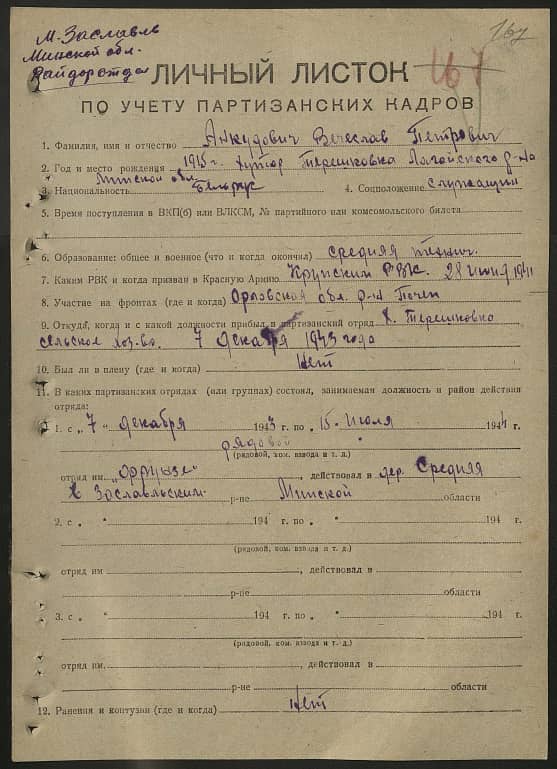 167
м. Заславль
Минской обл.
Райдоротдел
167
ЛИЧНЫЙ ЛИСТОК
ПО УЧЕТУ ПАРТИЗАНСКИХ КАДРОВ
1. Фамилия, имя и отчество Анкудович Вечеслав Петрович
2. Год и место рождения 1915 г. хутор Терешковка Лагойского р-на
Минской обл.
3. Национальность Белорус 4. Соцположение служащий
5. Время поступления в ВКП(б) или ВЛКСМ, № партийного или комсомольского билета
6. Образование: общее и военное (что и когда окончил) средняя технич.
7. Каким РВК и когда призван в Красную Армию Крупским РВК. 28 июня 1941
8. Участие на фронтах (где и когда) Орловская обл. р-н Почеп
9. Откуда, когда и с какой должности прибыл в партизанский отряд х. Терешковка
сельское хоз-во. 7 декабря 1943 года
10. Был ли в плену (где и когда) Нет
11. В каких партизанских отрядах (или группах) состоял, занимаемая должность и район действия
отряда:
1. с „7" декабря 1943 г. по „15" июля 1944 г.
рядовой
(рядовой, ком. взвода и т. д.)
отряд им „Фрунзе", действовал в дер. Средняя
в Заславльским р-не Минской области
2. с „ " 194 г. по „ " 194 г.
(рядовой, ком. взвода и т. д.)
отряд им , действовал в
р-не области
3. с „ " 194 г. по „ " 194 г.
(рядовой, ком. взвода и т. д.)
отряд им , действовал в
р-не области
12. Ранения и контузии (где и когда) Нет